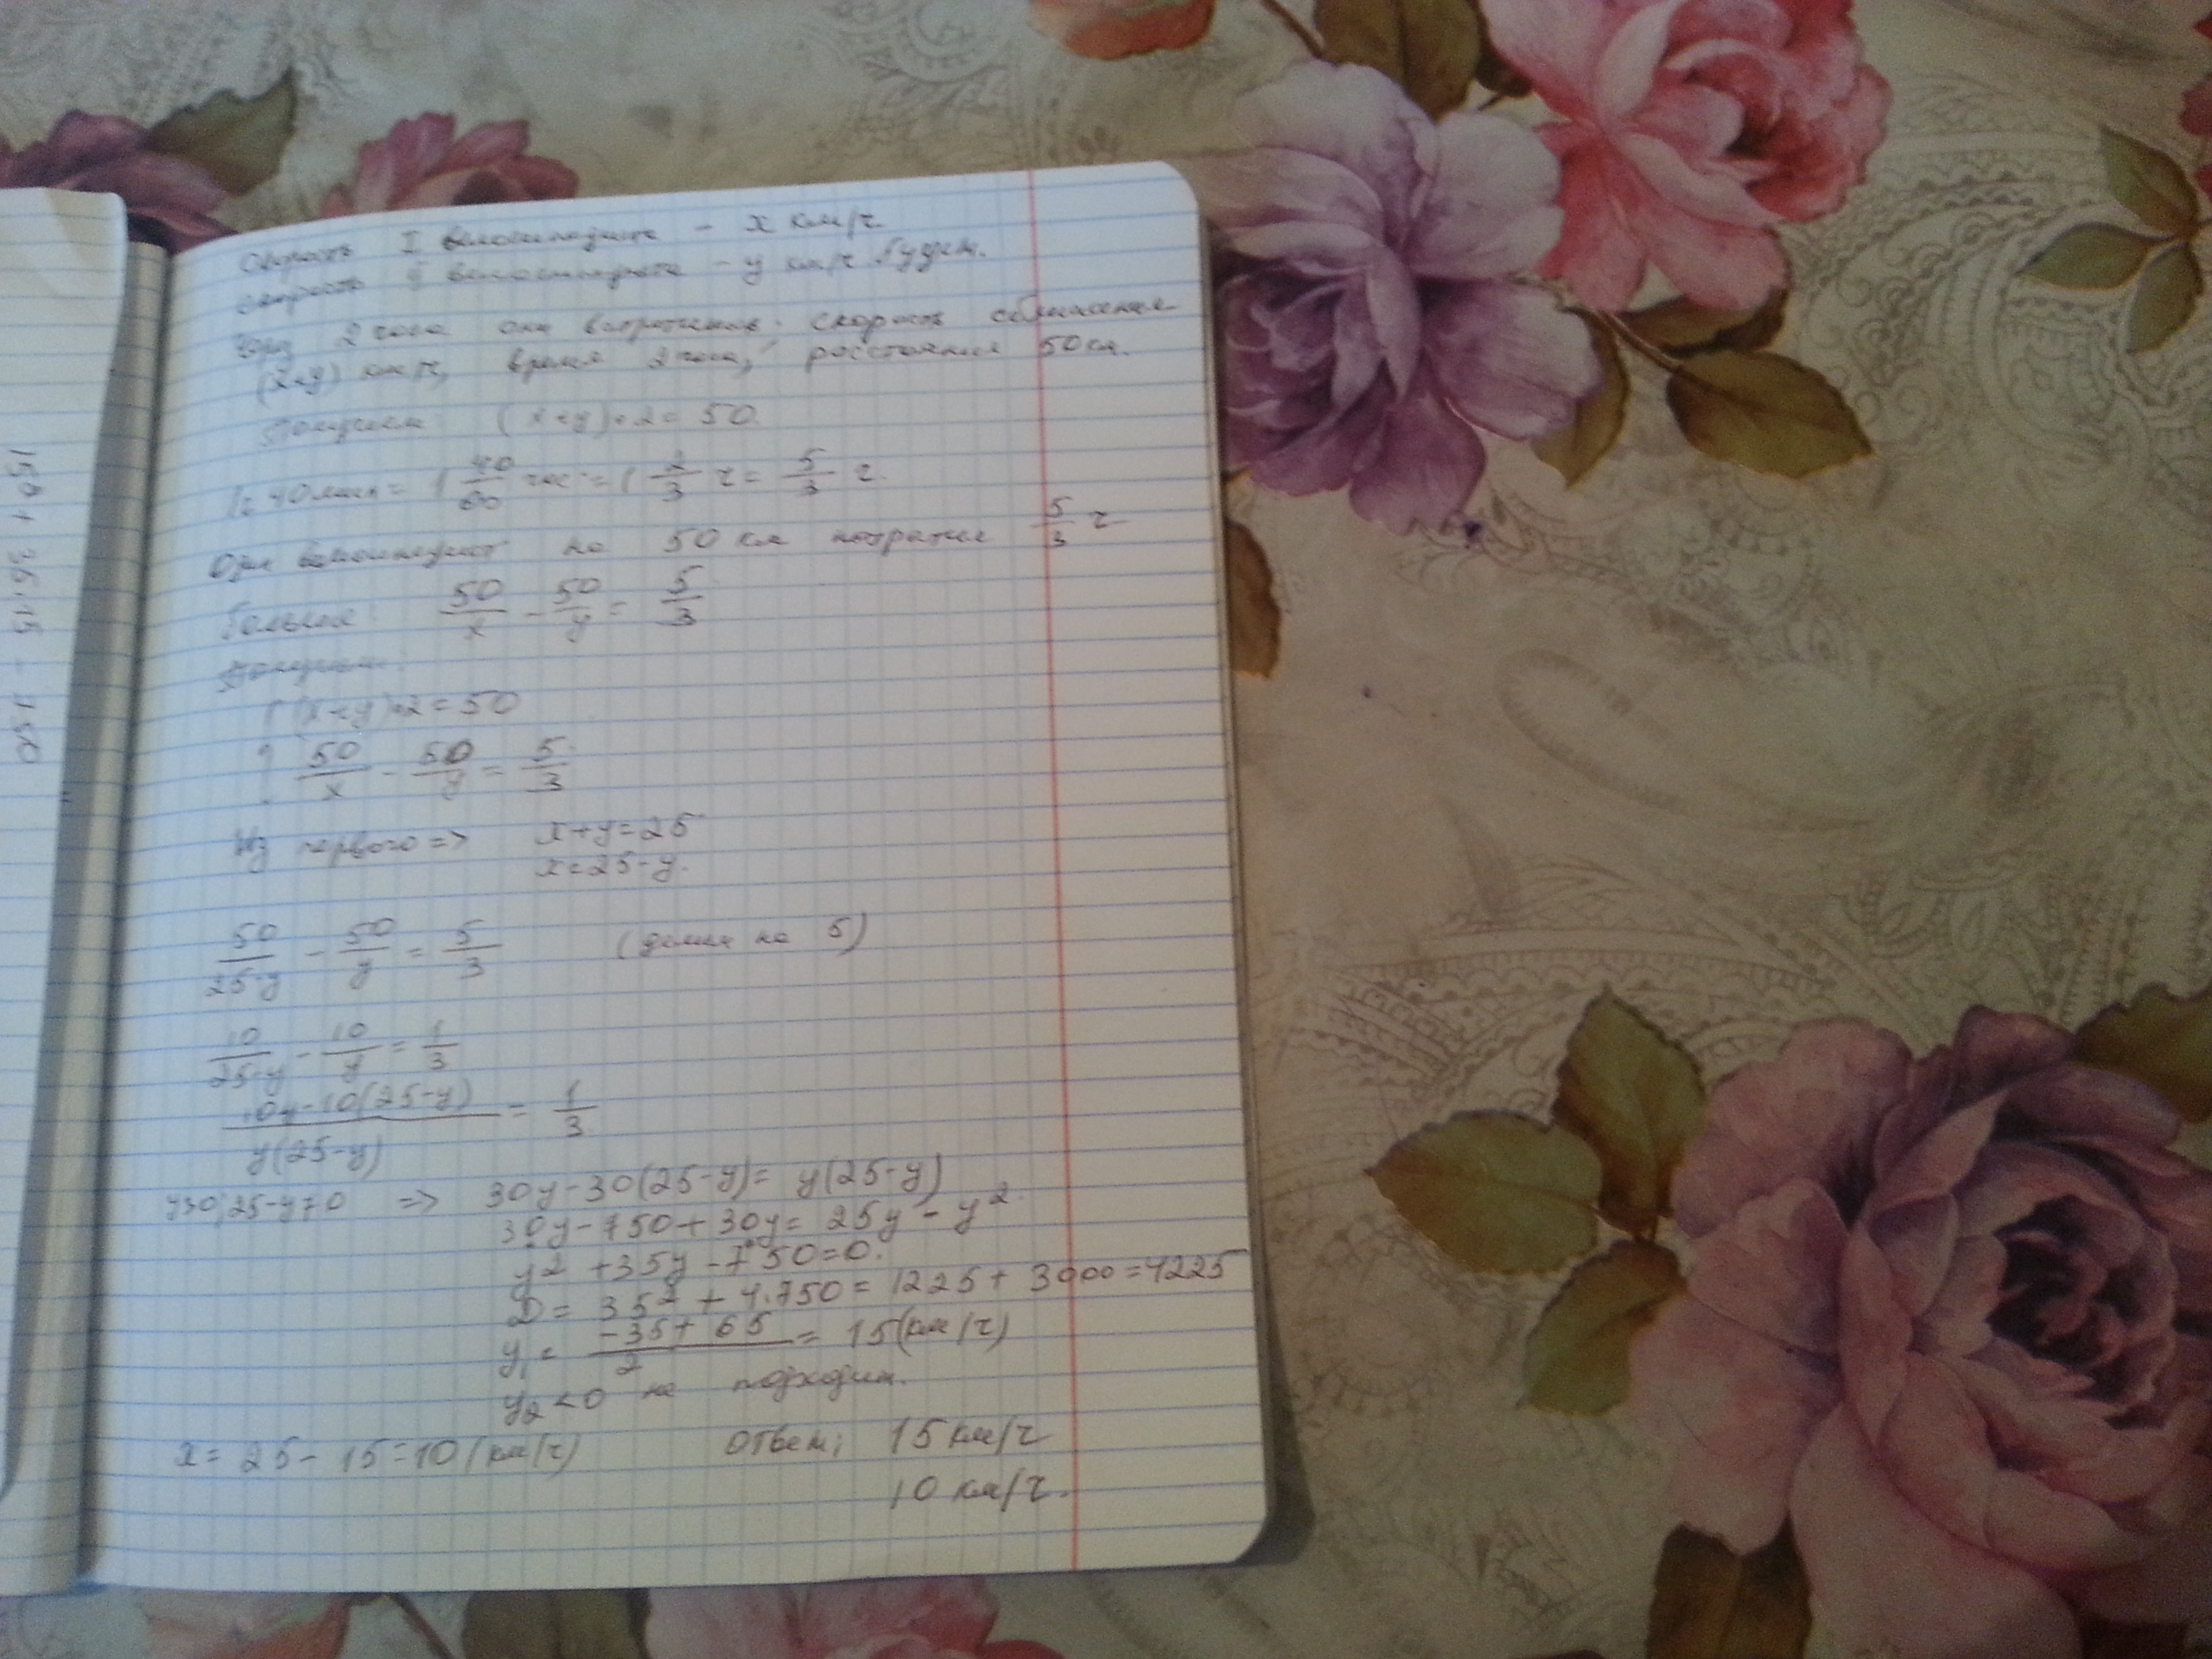 скорость I велосипедиста - x км/ч
скорость II велосипедиста - y км/ч будет.
Через 2 часа они встретились. скорость сближения
(x+y) км/ч, время 2 часа, расстояния 50 км.
Получаем (x+y)·2=50.
1ч 40мин = 1 40/60 час = 1 2/3 ч = 5/3 ч.
Один велосипедист на 50 км потратил 5/3 ч
больше: 50/x - 50/y = 5/3
Получаем:
{ (x+y)·2=50
50/x - 50/y = 5/3
Из первого => x+y=25
x=25-y.
50/25-y - 50/y = 5/3 (делим на 5)
10/25-y - 10/y = 1/3
10y-10(25-y)/y(25-y) = 1/3
y≠0, 25-y≠0 => 30y-30(25-y)= y(25-y)
30y-750+30y= 25y-y²
y²+35y-750=0.
D= 35²+4·750= 1225+3000=4225
y₁= -35+65/2 = 15(км/ч)
y₂<0 не подходит.
x= 25-15=10(км/ч) Ответ: 15 км/ч
10 км/ч.